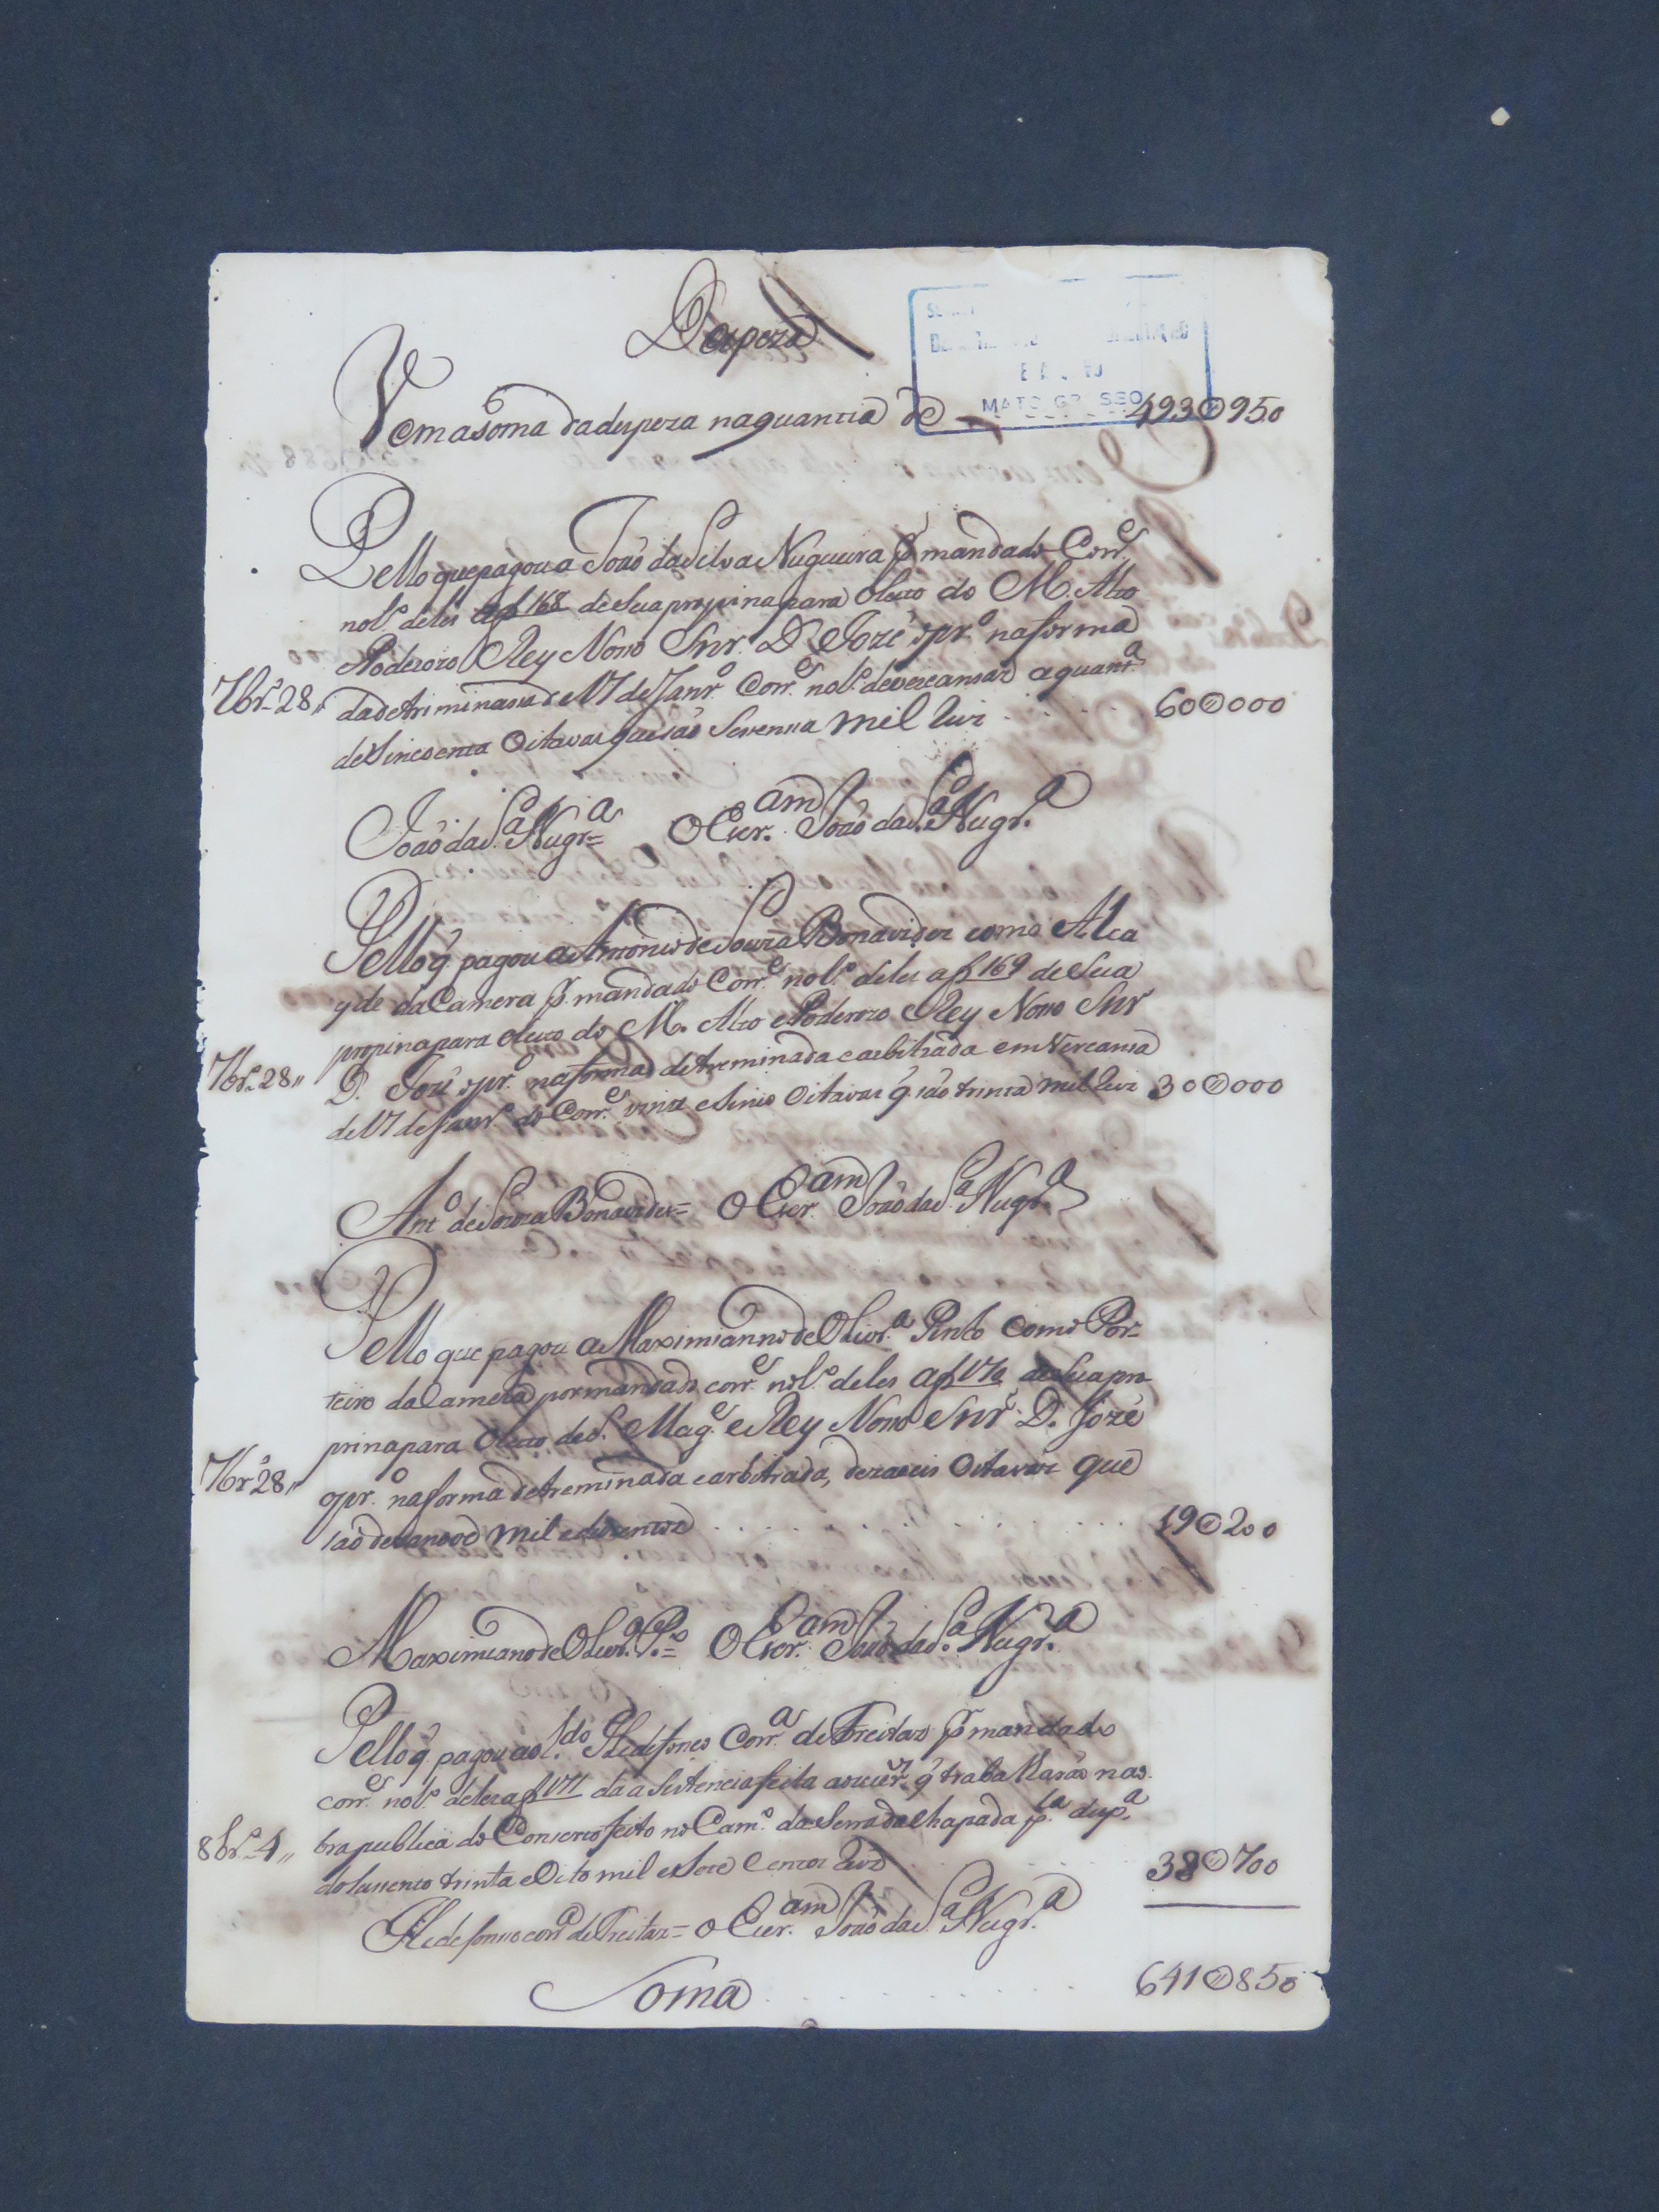 Despeza
Vem a soma da despeza na quantia de 493@950
Pello que pagou a João da Silva Nugueira p. mandado Corr.e
no l.o deles af 168 de sua propina para o luto do M. Alto
Poderozo Rey Noso Snr. D. Jozé o pr.o na forma
7br.o 28,, da detriminasaõ de 17 de Janr.o Corr.e no l.o de vereansas a quant.a
de Sincoenta Oitavas que saõ Sesenta mil Reis . . . . . 60@000
João da S.a Nugr.a O Escr.am João da S.a Nugr.a
Pello q̃ pagou a Antonio de Souza Bonavides como Alca
yde da Camera p. mandado Corr.e no l.o deles af 169 de sua
propina para o luto do M. Alto e Poderozo Rey Noso Snr
7br.o 28,, D. José o pr.o na forma detreminada e arbitrada em Vereansa
de 17 de Janr.o do Corr.e vinte e sinco Oitavas q̃ saõ trinta mil Reis 30@000
Ant.o de Souza Bonavides = O Escr.am João da S.a Nugr.a
Pello que pagou a Maximianno de Olivr.a Pinto como Por-
teiro da Camera por mandado corr.e no l.o deles af 170 de sua pro
pina para o luto de S. Mag.e e Rey Noso Snr D. Jozé
7br.o 28,, o pr.o na forma detreminada e arbitrada, dezaseis Oitavas que
saõ dezanove mil e duzentos . . . . . 19@200
Maximiano de Olivr.a P.to = O Escr.am João da S.a Nugr.a
Pello q̃ pagou ao l.do Ildefonso Corr.a de Freitas p. mandado
corr.e no l.o deles af 171 da asistencia feita aos q̃ trabalharaõ na o
8br.o 4,, bra publica do Conserto feito no Cam.o da Serra da Chapada p.a
trinta e Oito mil e sete Centos Reis 38@700
Ildefonso corr.a de Freitas = o Escr.am João da S.a Nugr.a
Soma . . . . . 641@850
MATO GROSSO